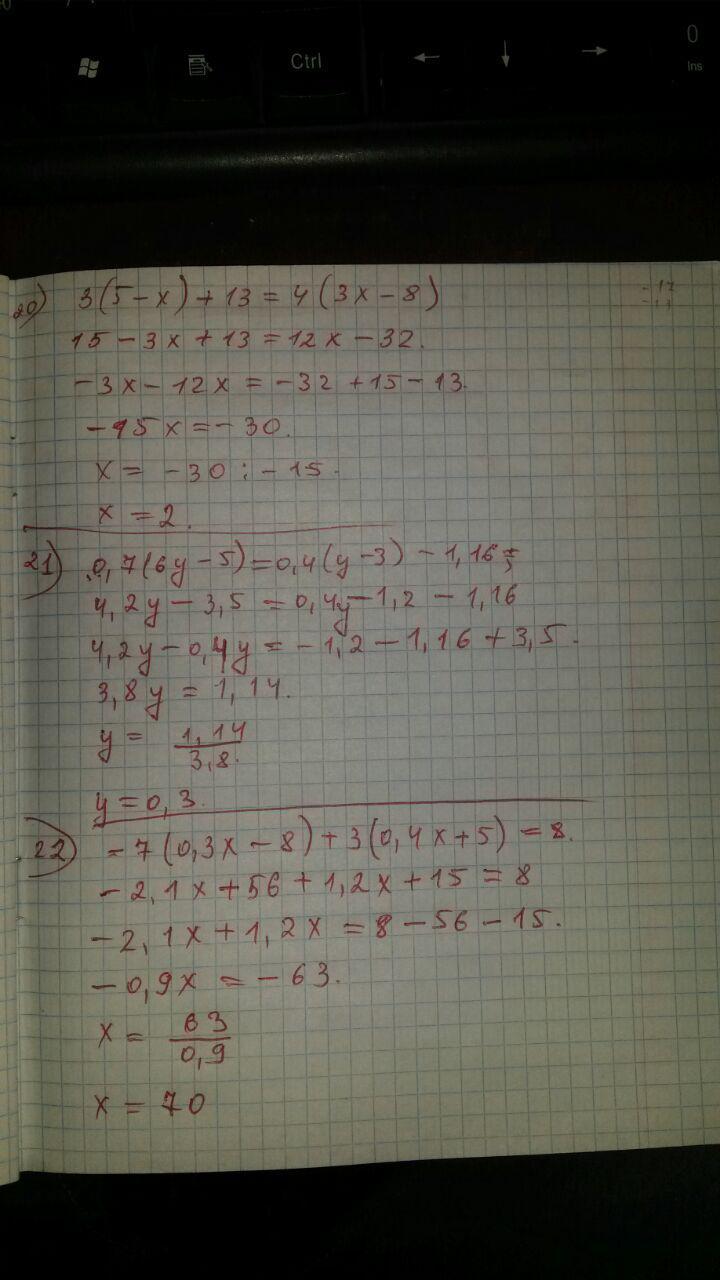 0
Ctrl ← ↓ → Ins
20) 3(5-x)+13=4(3x-8)
15-3x+13=12x-32.
-3x-12x=-32+15-13.
-15x=-30.
x=-30:-15.
x=2.
21) 0,7(6y-5)=0,4(y-3)-1,16=
4,2y-3,5=0,4y-1,2-1,16
4,2y-0,4y=-1,2-1,16+3,5.
3,8y=1,14.
y=1,14/3,8.
y=0,3.
22) -7(0,3x-8)+3(0,4x+5)=8.
-2,1x+56+1,2x+15=8
-2,1x+1,2x=8-56-15.
-0,9x=-63.
x=63/0,9
x=70